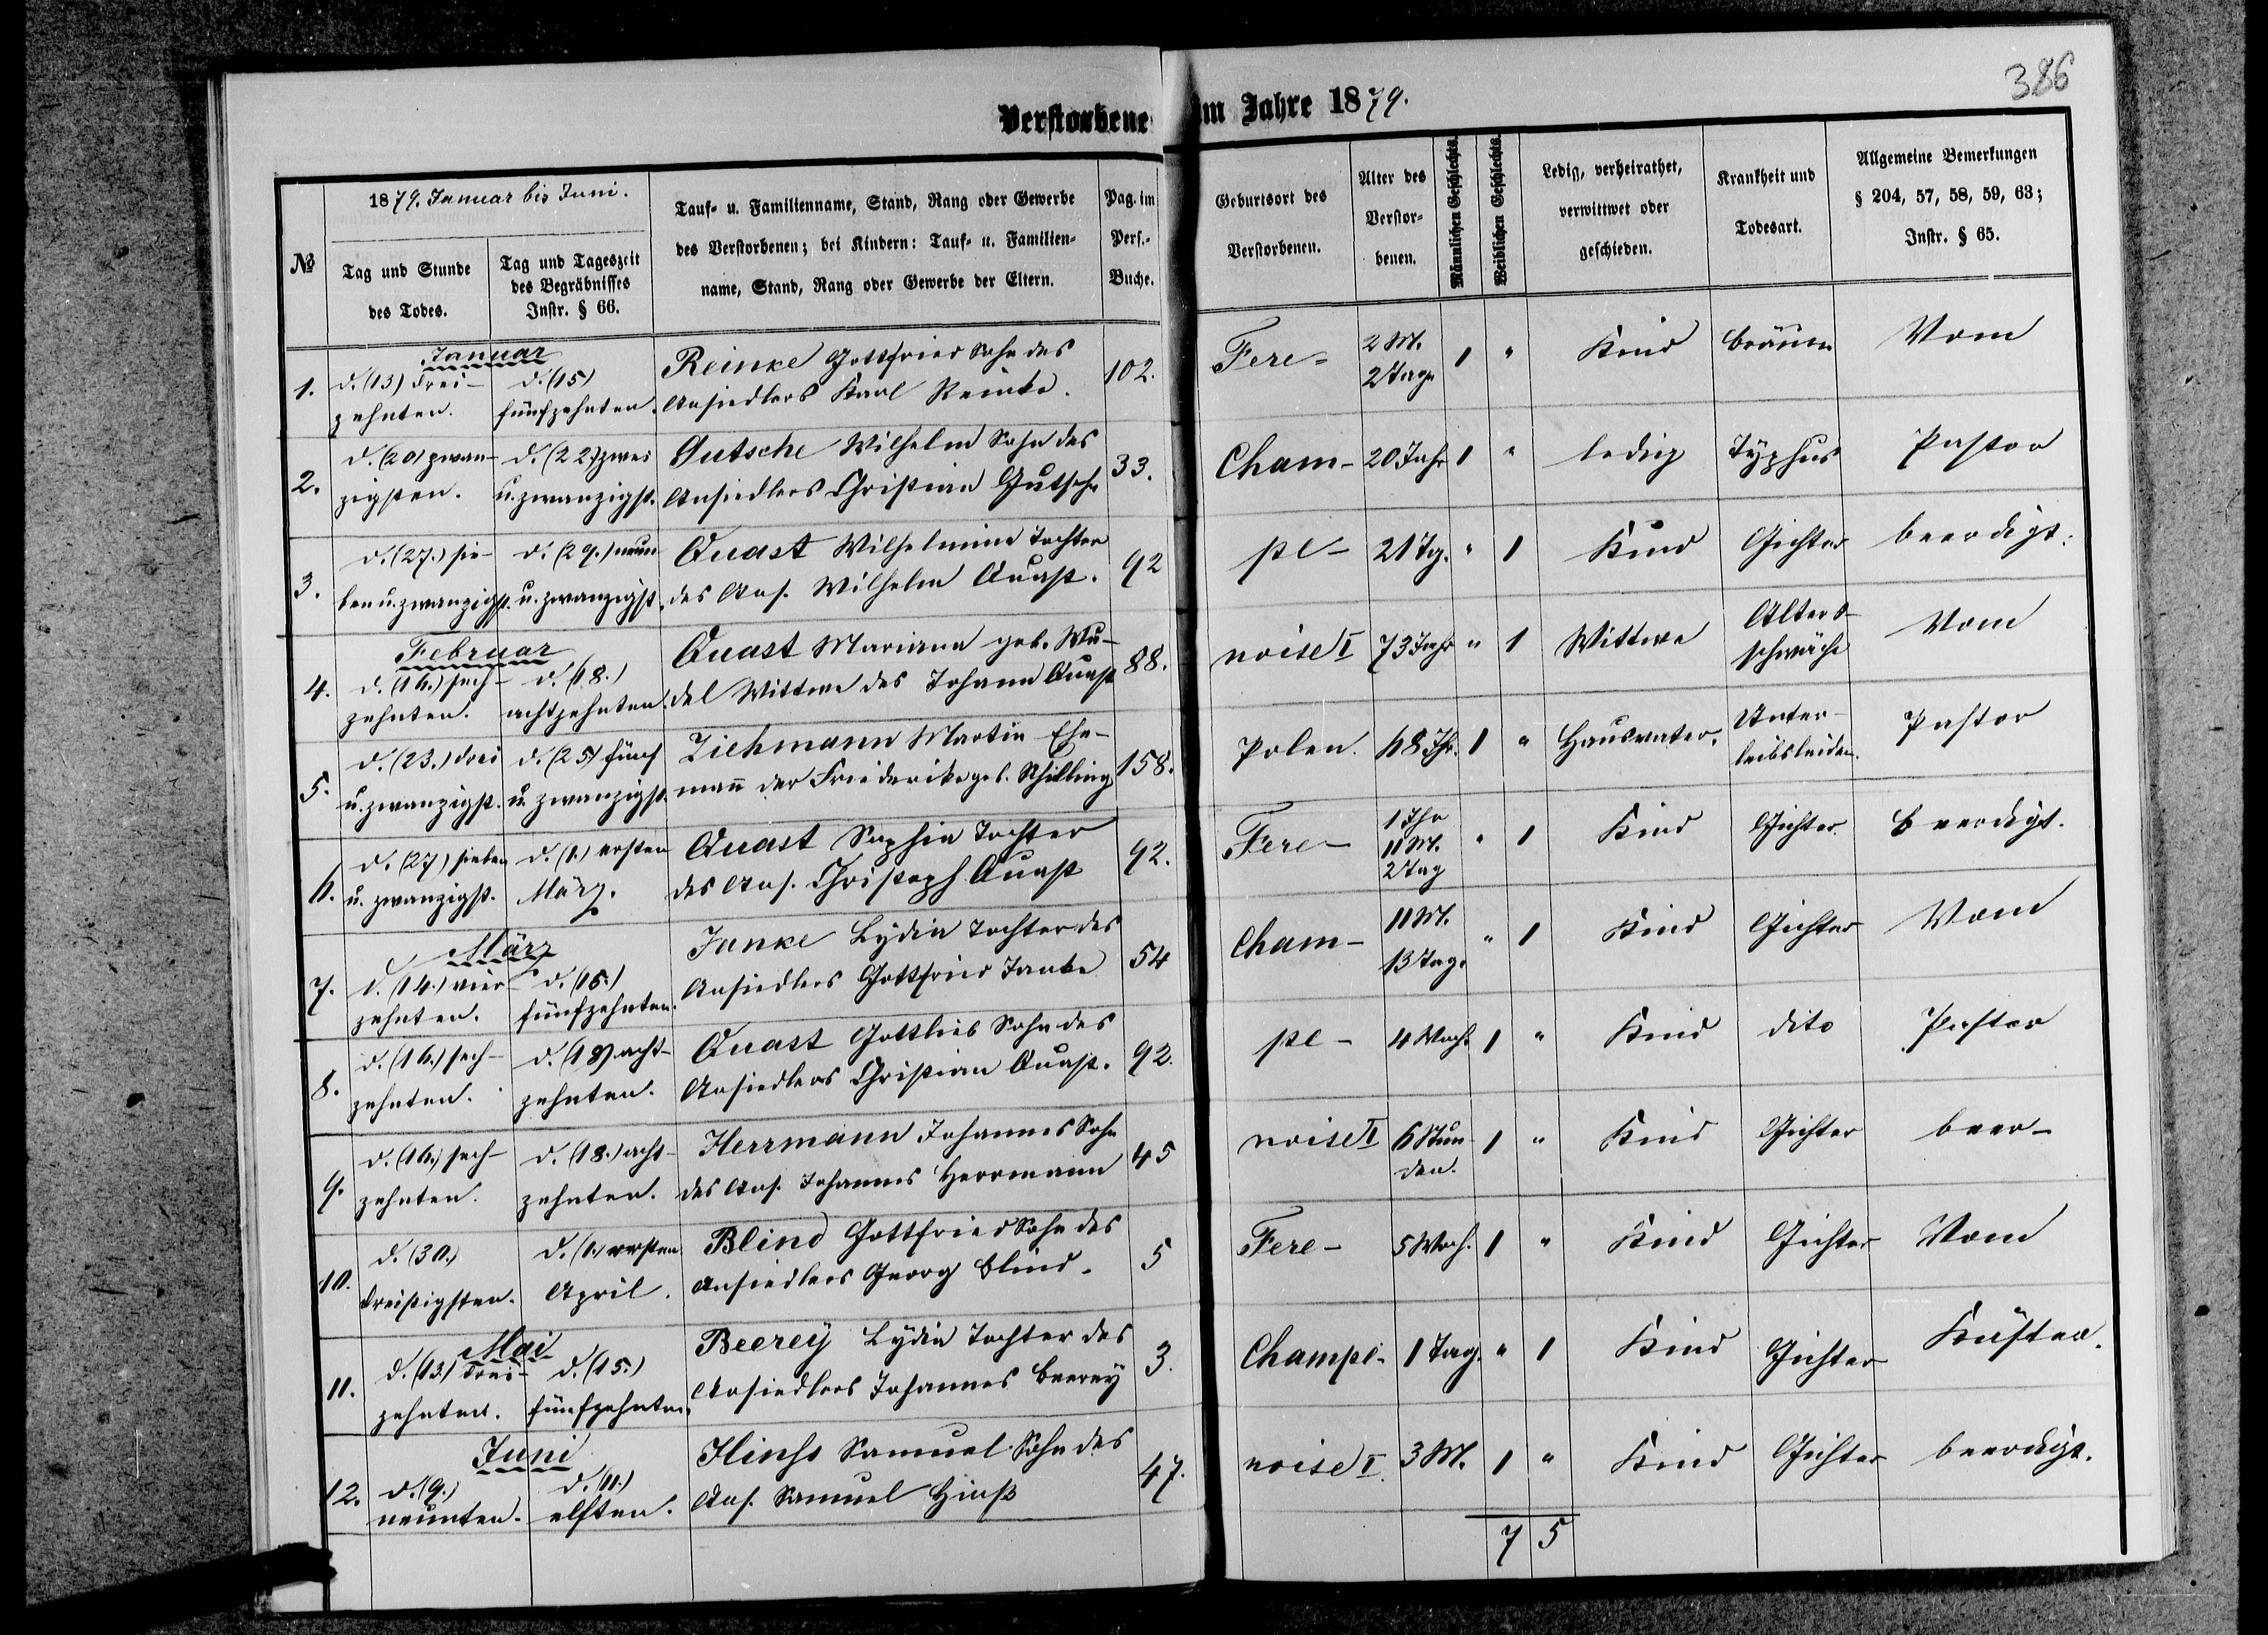 386
Verstorbene im Jahre 1879.
№
1879. Januar bis Juni.
Tag und Stunde
des Todes.
Tag und Tageszeit
des Begräbnisses
Instr. § 66.
Tauf- u. Familienname, Stand, Rang oder Gewerbe
des Verstorbenen; bei Kindern: Tauf- u. Familien-
name, Stand, Rang oder Gewerbe der Eltern.
Pag. im
Pers.-
Buche.
Geburtsort des
Verstorbenen.
Alter des
Verstor-
benen.
Männlichen Geschlechts.
Weiblichen Geschlechts.
Ledig, verheirathet,
verwittwet oder
geschieden.
Krankheit und
Todesart.
Allgemeine Bemerkungen
§ 204, 57, 58, 59, 63;
Instr. § 65.
Januar
1. d. (13) drei- d. (15) Reinke Gottfried Sohn des 102. Fere- 2 M. 1 " Kind bräune Vom
zehnten. fünfzehnten. Ansiedlers Karl Reinke. 2 Tage
2. d. (20) zwan- d. (22.) zwei Gutsche Wilhelm Sohn des 33. Cham- 20 Jahr 1 " ledig Typhus Pastor
zigsten. u. zwanzigst. Ansiedlers Christian Gutsche
3. d. (27.) sie- d. (29.) neun Quast Wilhelmine Tochter 92 pe- 21 Tg. " 1 Kind Gichter beerdigt.
ben u. zwanzigst. u. zwanzigst. des Ans. Wilhelm Quast.
Februar
4. d. (16.) sech- d. (18.) Quast Mariana geb. Wu- 88. noise I 73 Jahr " 1 Wittwe Alters- Vom
zehnten. achtzehnten. del Wittwe des Johann Quast schwäche
5. d. (23.) drei d. (25) fünf Ziehmann Martin Ehe- 158. Polen. 68 Jhr. 1 " Hausvater. Unter- Pastor
u. zwanzigst. u. zwanzigst. mañ der Friederike geb. Schilling leibsleiden.
6. d. (27) sieben d. (1.) ersten Quast Sophia Tochter 92. Fere- 1 Jhr " 1 Kind Gichter beerdigt.
u. zwanzigst. März. des Ans. Christoph Quast 11 M.
2 Tag
März
7. d. (14.) vier- d. (15.) Janke Lydia Tochter des 54 Cham- 11 M. " 1 Kind Gichter Vom
zehnten. fünfzehnten. Ansiedlers Gottfried Janke 13 Tage
8. d. (16.) sech- d. (18) acht- Quast Gottlieb Sohn des 92. pe- 4 Woch. 1 " Kind dito Pastor
zehnten. zehnten. Ansiedlers Christian Quast.
9. d. (16.) sech- d. (18.) acht- Herrmann Johannes Sohn 45 noise I 6 Stun- 1 " Kind Gichter beer-
zehnten. zehnten. des Ans. Johannes Herrmann den.
10. d. (30.) d. (1.) ersten Blind Gottfried Sohn des 5 Fere- 5 Woch. 1 " Kind Gichter Vom
dreißigsten. April. Ansiedlers Georg Blind.
Mai
11. d. (13) drei- d. (15.) Beerey Lydia Tochter des 3. Champe- 1 Tag. " 1 Kind Gichter Küster.
zehnten. fünfzehnten. Ansiedlers Johannes Beerey
Juni
12. d. (9.) d. (11.) Hinss Samuel Sohn des 47. noise I. 3 M. 1 " Kind Gichter beerdigt.
neunten. elften. Ans. Samuel Hinß
7 5